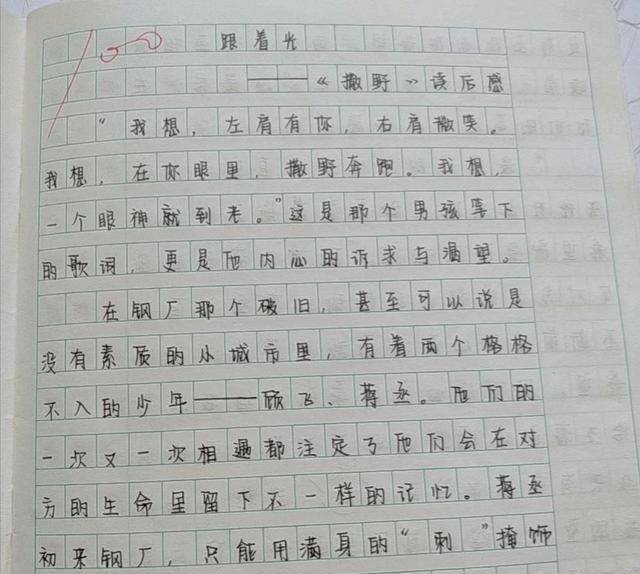 跟着光
——《撒野》读后感
“我想，左肩有你，右肩微笑。
我想，在你眼里，撒野奔跑。我想，
一个眼神就到老。”这是那个男孩写下
的歌词，更是他内心的诉求与渴望。
在钢厂那个破旧，甚至可以说是
没有素质的小城市里，有着两个格格
不入的少年——顾飞、蒋丞。他们的
一次又一次相遇都注定了他们会在对
方的生命里留下不一样的记忆。蒋丞
初来钢厂，只能用满身的“刺”掩饰